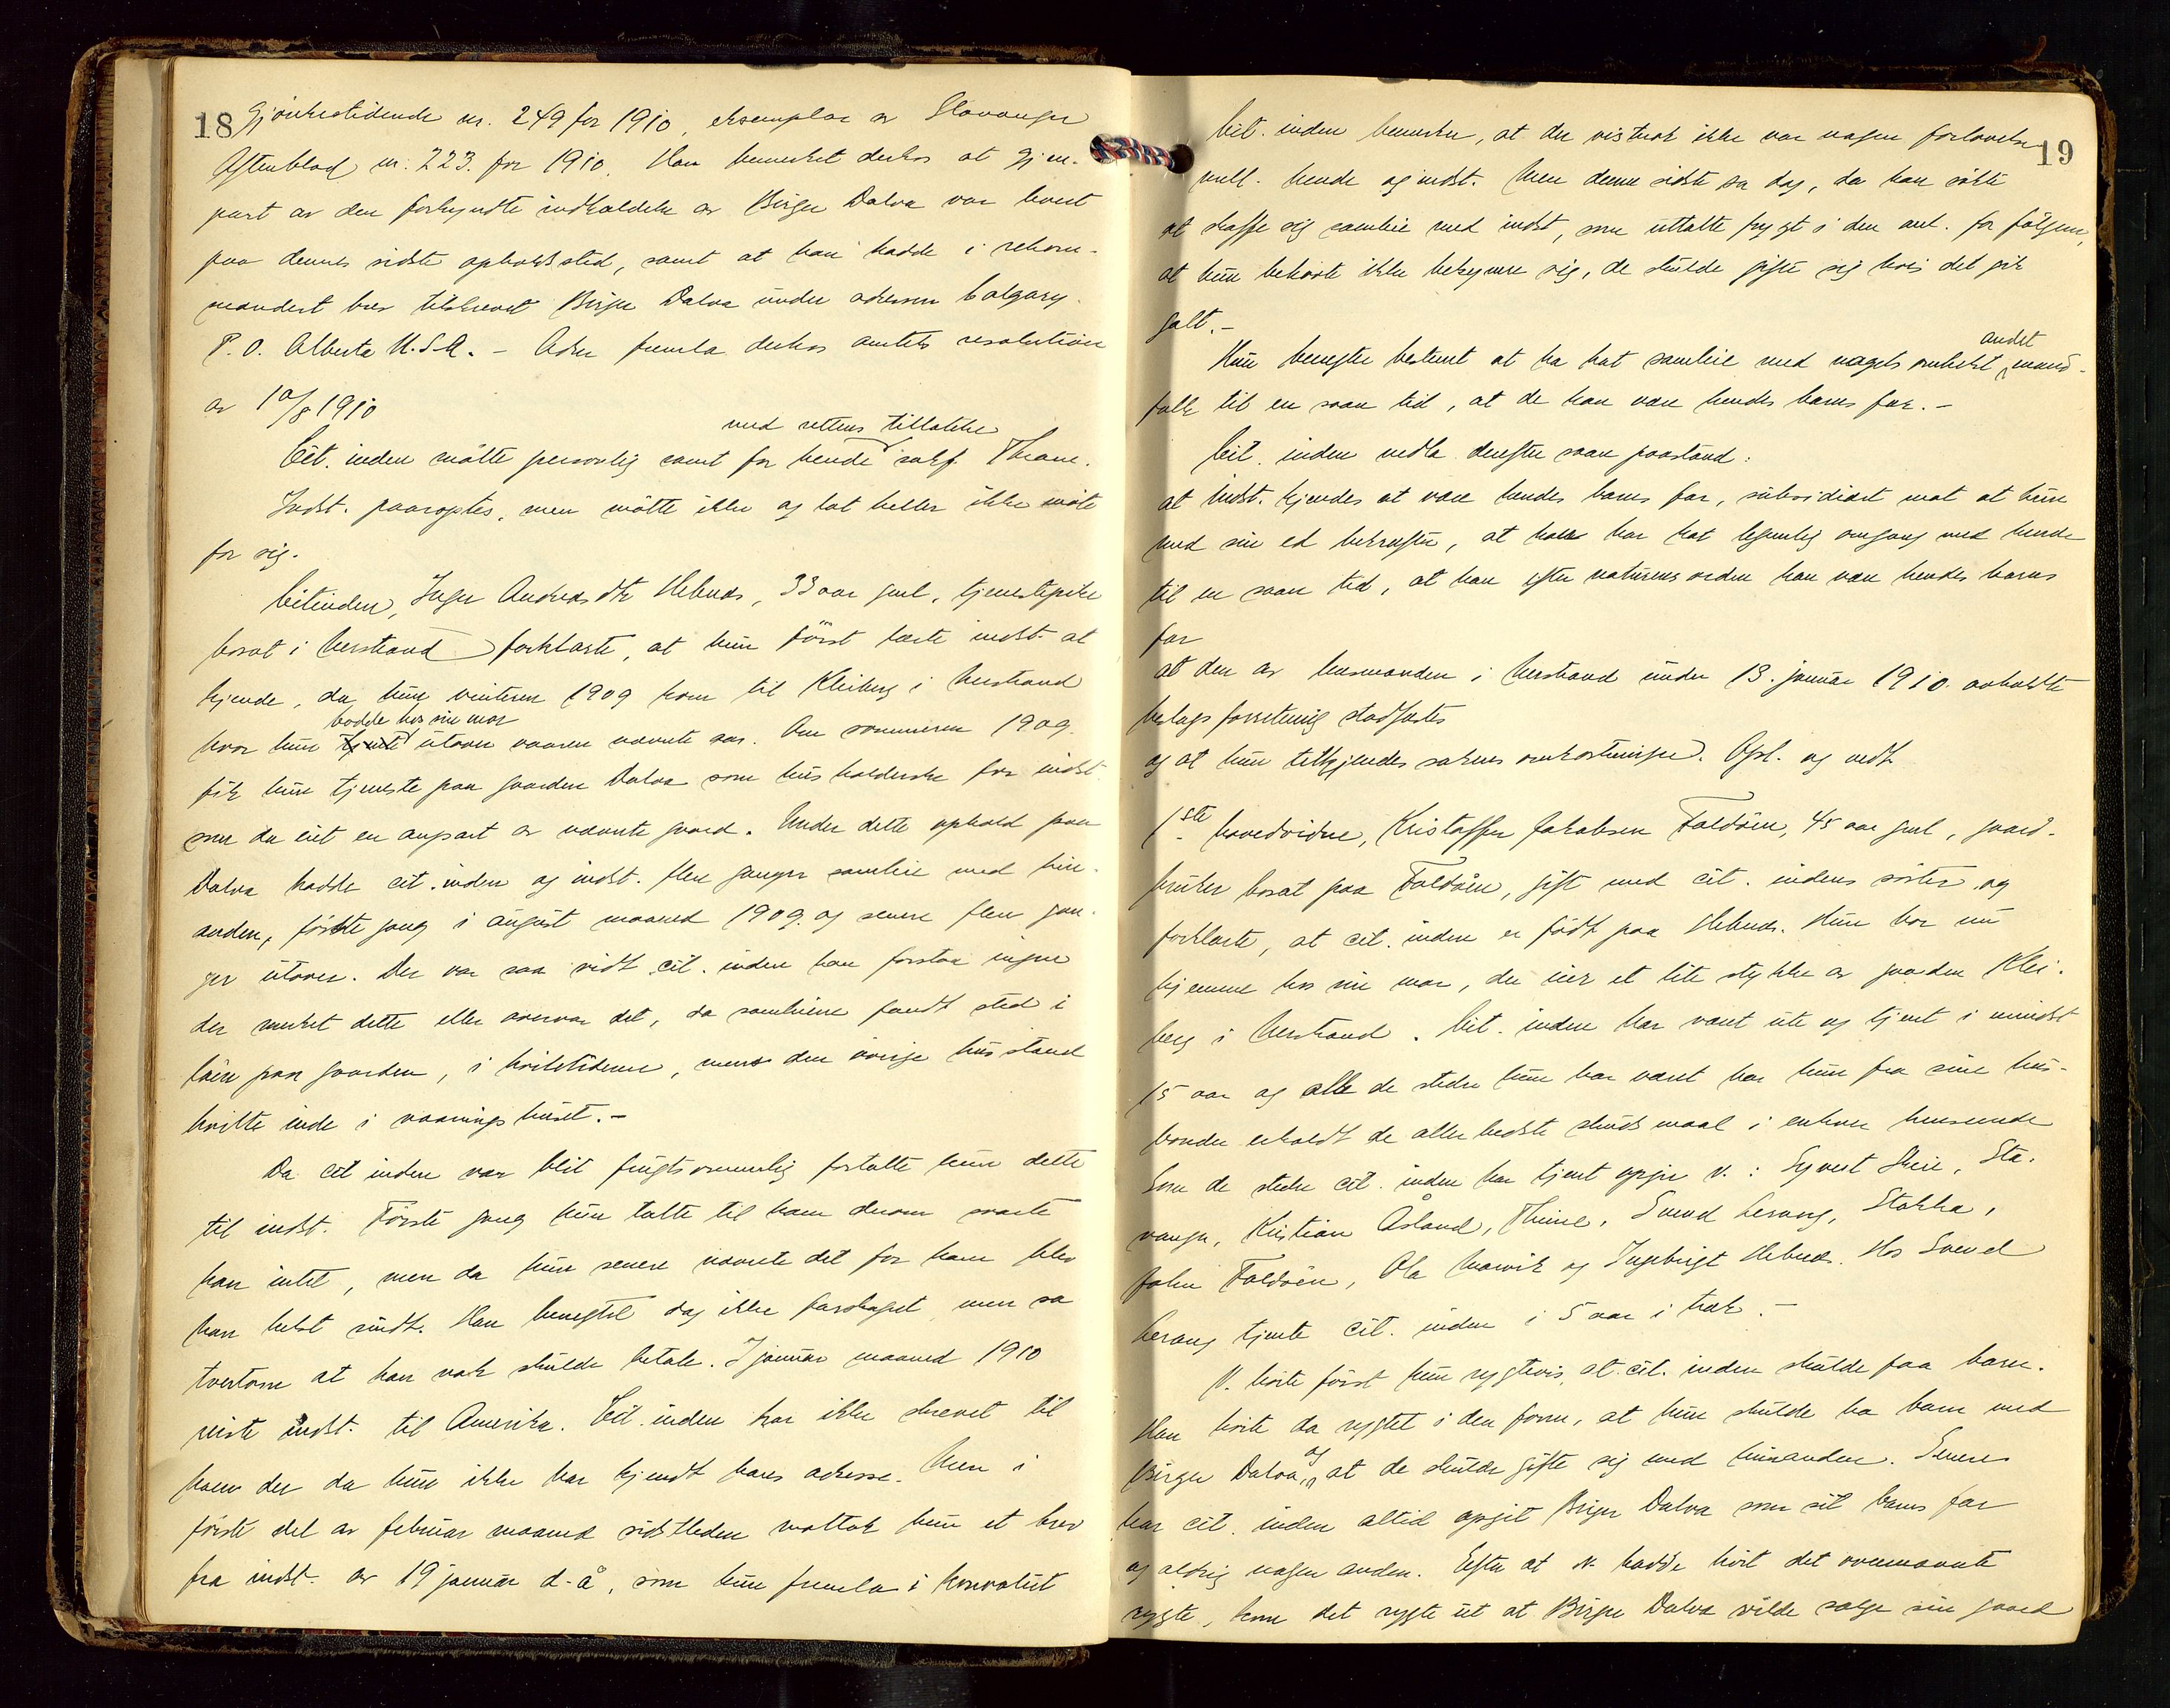 18
gjörelsestidende nr. 249 for 1910, eksemplar av Stavanger
Aftenblad nr. 223. for 1910. Han bemerket derhos at gjen-
part av den forkyndte indkaldelse av Birger Dalva var levert
paa dennes sidste opholdssted, samt at han hadde i rekom-
mandert brev tilskrevet Birger Dalva under adressen Calgary
P. O. Alberta U.S.A. - Adv. fremla derhos amtets resolution
av 10/8 1910
med rettens tillatelse
Cit. inden mötte personlig samt for hende sakf. Thrane.
Indst. paaroptes, men mötte ikke og lot heller ikke möte
for sig.
Citinden, Inger Andreasdtr Hebnes, 33 aar gml, tjenestepike
bosat i Nerstrand forklarte, at hun först lærte indst. at
kjende, da hun vinteren 1909 kom til Kleiberg i Nerstrand
bodde hos sin mor
hvor hun tjente utover vaaren nævnte aar. Om sommeren 1909.
fik hun tjeneste paa gaarden Dalva som husholderske for indst.
som da eiet en anpart av nævnte gaard. Under dette ophold paa
Dalva hadde cit. inden og indst. flere ganger samleie med hin-
anden, förste gang i august maaned 1909. og senere flere gan-
ger utover. Der var saa vidt cit. inden kan forstaa ingen
der merket dette eller overvar det, da samleiene fandt sted i
löen paa gaarden, i hviletiderne, mens den övrige husstand
hvilte inde i vaaningshuset. -
Da cit inden var blit frugtsommelig fortalte hun dette
til indst. Förste gang hun talte til ham derom svarte
han intet, men da hun senere nævnte det for ham blev
han helst sindt. Han benegtet dog ikke farskapet men sa
tvertom at han nok skulde betale. I januar maaned 1910
reiste indst. til Amerika. Cit. inden har ikke skrevet til
ham der da hun ikke har kjendt hans adresse. Men i
förste del av februar maaned sidstleden mottok hun et brev
fra indst. av 19 januar d-å, som hun fremla i konvolut
19
Cit. inden bemerker, at der vistnok ikke var nogen forlovelse
mell. hende og indst. Men denne sidste sa dog, da han sökte
at skaffe sig samleie med indst, som uttalte frygt i den anl. for fölgerne,
at hun behövte ikke bekymre sig, de skulde gifte sig hvis det gik
galt. -
andet
Hun benegter bestemt at ha hat samleie med nogets somhelst mand-
folk til en saan tid, at de kan være hendes barns far. -
Cit. inden nedla derefter saan paastand:
at indst. kjendes at være hendes barns far, subsidiært mot at hun
med sin ed bekræfter, at han har hat legemlig omgang med hende
til en saan tid, at han efter naturens orden kan være hendes barns
far
at den av lensmanden i Nerstrand under 13. januar 1910. avholdte
beslagsforretning stadfæstes
og at hun tilkjendes sakens omkostninger. Opl. og vedt.
1ste hovedvidne, Kristoffer Jakobsen Foldöen, 45 aar gml, gaard-
bruker bosat paa Foldöen, gift med cit. indens söster og
forklarte, at cit. inden er födt paa Hebnes. Hun bor nu
hjemme hos sin mor, der eier et lite stykke av gaarden Klei-
berg i Nerstrand. Cit. inden har været ute og tjent i mindst
15 aar og alle de steder hun har været har hun fra sine hus-
bonder erholdt de aller bedste skudsmaal i enhver henseende
Som de steder cit. inden har tjent opgir v. : Syvert Skeie, Sta-
vanger, Kristian Åsland, Thime, Svend Lervang, Stokka,
John Foldöen, Ola Narvik og Ingebrigt Hebnes. Hos Svend
Lervang tjente cit. inden i 5 aar i træk. -
V. hörte först kun rygtevis at cit. inden skulde faa barn.
Han hörte da rygtet i den form, at hun skulde ha barn med
og
Birger Dalva, at de skulde gifte sig med hinanden. Senere
har cit. inden altid opgit Birger Dalva som sit barns far
og aldrig nogen anden. Efter at v. hadde hört det ovennævnte
rygte, kom det rygte ut at Birger Dalva vilde sælge sin gaard